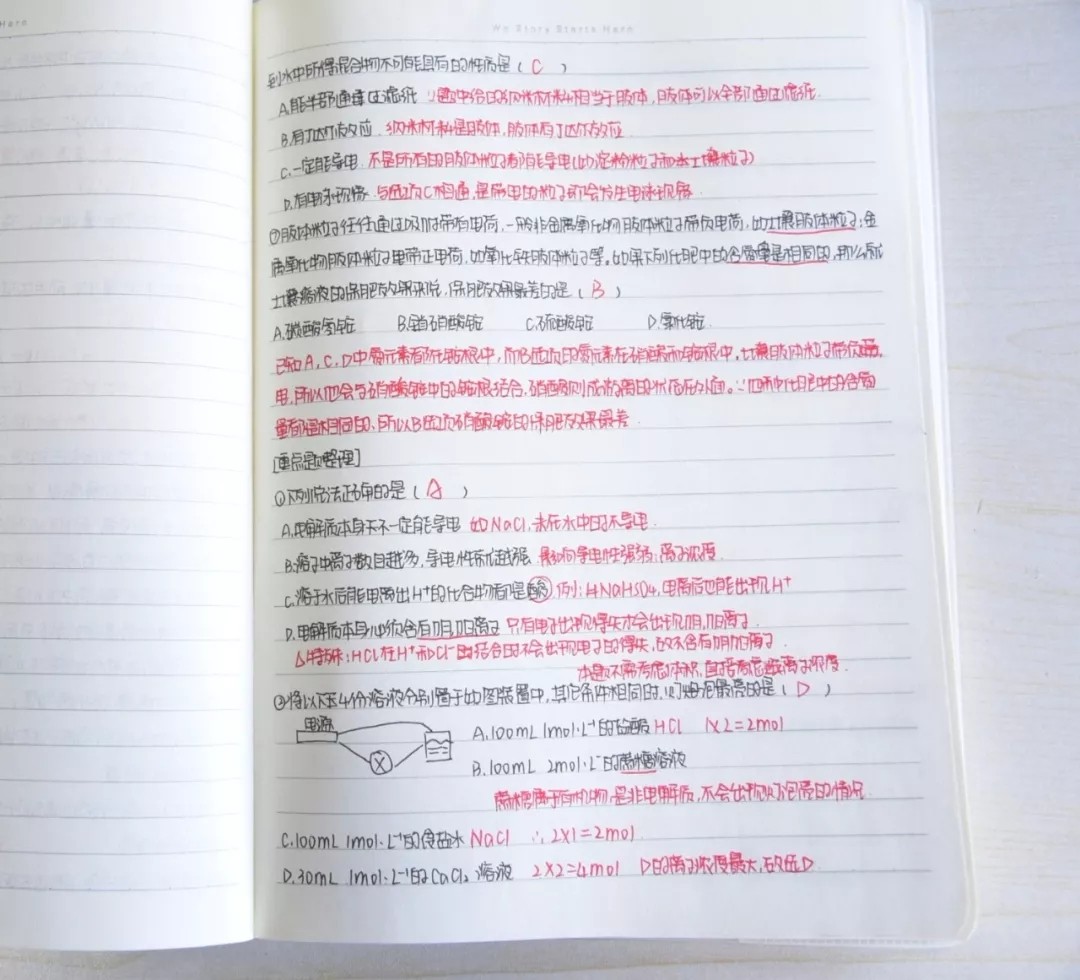 Here
We Story Starts Here
到水中所得混合物不可能具有的性质是( C )
A.能全部通过滤纸 ∵题中给的纳米材料相当于胶体,胶体可以全部通过滤纸.
B.有丁达尔效应. 纳米材料是胶体,胶体有丁达尔效应
C.一定能导电 不是所有的胶体粒子都能导电(如淀粉粒子和土壤粒子)
D.有电泳现象. 与选项C相通,是带电的粒子才会发生电泳现象.
胶体粒子往往通过吸附带有电荷,一般非金属氧化物胶体粒子带负电荷,如土壤胶体粒子;金
属氧化物胶体粒子里带正电荷,如氧化铁胶体粒子等。如果下列化肥中的含氮量是相同的,那么就
土壤溶液的保肥效果来说,保肥效果最差的是( B )
A.碳酸氢铵 B.硝酸铵 C.硫酸铵 D.氯化铵.
已知A,C,D中氮元素都在铵根中,而B选项的氮元素在硝酸和铵根中,土壤胶体粒子带负
电,所以他会与硝酸铵中的铵根结合,硝酸则成游离的状态。∵四种化肥中的含氮
量都是相同的,所以B选项硝酸铵的保肥效果最差.
[重点题整理]
①下列说法正确的是( A )
A.电解质本身不一定能导电 如NaCl,未在水中时不导电.
B.溶子中离子数目越多,导电性就越强. 影响导电性强弱:离子浓度.
C.溶于水后能电离出H⁺的化合物都是酸 例:NaHSO₄,电离后也能出现H⁺
D.电解质本身必须含有阴,阳离子 只有电子出现得失才会出现阴,阳离子.
△特殊:HCl在H⁺和Cl⁻时结合时不会出现电子的得失,故不含有阴阳离子.
本题不需考虑体积,直接考虑离子浓度.
②将以下4份溶液分别置于如图装置中,其它条件相同时,灯泡最亮的是( D )
电源
A.100mL 1mol·L⁻¹的盐酸 HCl 1×2=2mol
B.100mL 2mol·L⁻¹的蔗糖溶液
蔗糖属于有机物,是非电解质,不会出现灯泡亮的情况.
C.100mL 1mol·L⁻¹的食盐水 NaCl ∴2×1=2mol.
D.30mL 1mol·L⁻¹的CaCl₂溶液 2×2=4mol D的离子浓度最大,故选D.